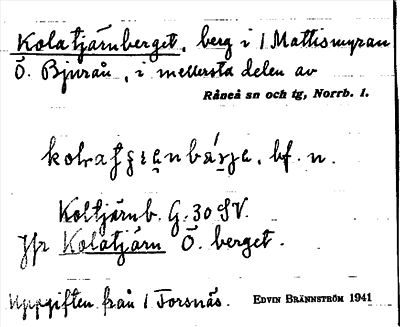 Kolatjärnberget, berg i 1 Mattismyran
Ö. Bjurån, i mellersta delen av
Råneå sn och tg, Norrb. l.
bf. n.
Koltjärnb. G. 30 SV.
Jfr Kolatjärn Ö. berget.
Uppgiften från 1 Forsnäs. EDVIN BRÄNNSTRÖM 1941